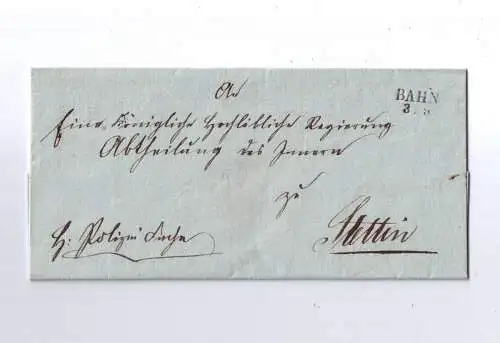 An
BAHN
3
Eine Königliche Hochlöbliche Regierung
Abtheilung des Innern
zu
Stettin
H. Polizei Sache